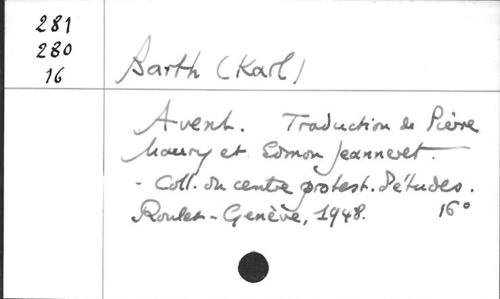 281
280
16
Barth (Karl)
Avent. Traduction de Pierre
Maury et Edmon Jeanneret.
- Coll. du centre protest. d'études.
Roulet - Genève, 1948. 16°